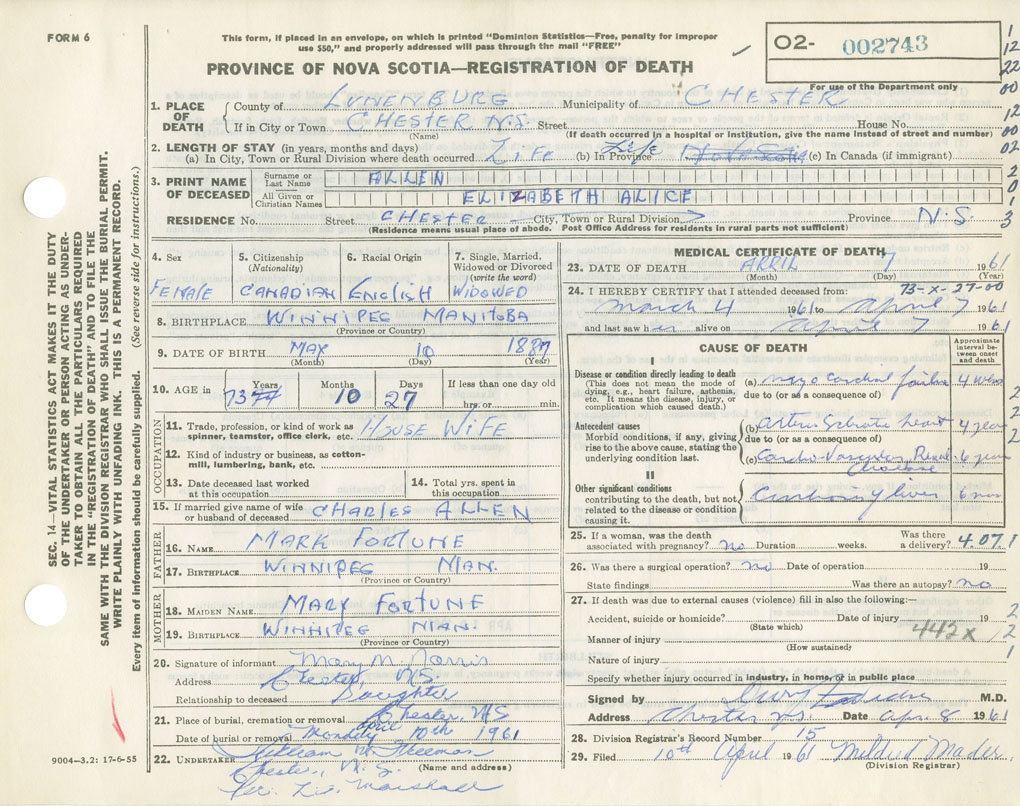 FORM 6
This form, if placed in an envelope, on which is printed "Dominion Statistics—Free, penalty for improper
use $50," and properly addressed will pass through the mail "FREE"
PROVINCE OF NOVA SCOTIA—REGISTRATION OF DEATH
O2- 002743
For use of the Department only
1
12
22
00
12
00
02
2
0
1
3
1. PLACE OF DEATH
County of LUNENBURG Municipality of CHESTER
If in City or Town CHESTER N.S. Street House No.
(Name) (If death occurred in a hospital or institution, give the name instead of street and number)
2. LENGTH OF STAY (in years, months and days)
(a) In City, Town or Rural Division where death occurred LIFE (b) In Province Life (c) In Canada (if immigrant)
3. PRINT NAME OF DECEASED
Surname or Last Name ALLEN
All Given or Christian Names ELIZABETH ALICE
RESIDENCE No. Street CHESTER City, Town or Rural Division Province N.S.
(Residence means usual place of abode. Post Office Address for residents in rural parts not sufficient)
4. Sex
FEMALE
5. Citizenship
(Nationality)
CANADIAN
6. Racial Origin
ENGLISH
7. Single, Married,
Widowed or Divorced
(write the word)
WIDOWED
8. BIRTHPLACE WINNIPEG MANITOBA
(Province or Country)
9. DATE OF BIRTH MAY 10 1887
(Month) (Day) (Year)
10. AGE in
Years Months Days If less than one day old
73 74 10 27 hrs. or min.
OCCUPATION
11. Trade, profession, or kind of work as
spinner, teamster, office clerk, etc. HOUSE WIFE
12. Kind of industry or business, as cotton-
mill, lumbering, bank, etc.
13. Date deceased last worked
at this occupation
14. Total yrs. spent in
this occupation
15. If married give name of wife
or husband of deceased CHARLES ALLEN
FATHER
16. NAME MARK FORTUNE
17. BIRTHPLACE WINNIPEG MAN.
(Province or Country)
MOTHER
18. MAIDEN NAME MARY FORTUNE
19. BIRTHPLACE WINNIPEG MAN.
(Province or Country)
20. Signature of informant Mary M
Address Chester, N.S.
Relationship to deceased Daughter
21. Place of burial, cremation or removal Chester, N.S
Date of burial or removal Monday April 10th 1961
22. UNDERTAKER William Freeman
Chester, N.S.
(Name and address)
Per. Marshall
9004—3.2: 17-6-55
MEDICAL CERTIFICATE OF DEATH
23. DATE OF DEATH APRIL 7 1961
(Month) (Day) (Year)
73-X-27-00
24. I HEREBY CERTIFY that I attended deceased from:
March 4 1961 to April 7 1961
and last saw her alive on April 7 1961
CAUSE OF DEATH
Approximate interval between onset and death
I
Disease or condition directly leading to death
(This does not mean the mode of
dying, e.g., heart failure, asthenia,
etc. It means the disease, injury, or
complication which caused death.)
(a) myocardial failure 4
due to (or as a consequence of)
Antecedent causes
Morbid conditions, if any, giving
rise to the above cause, stating the
underlying condition last.
(b) heart 4 years
due to (or as a consequence of)
(c) Cardio-Vascular Renal 6 years
disease
II
Other significant conditions
contributing to the death, but not
related to the disease or condition
causing it.
liver 6 mos
2
2
2
25. If a woman, was the death
associated with pregnancy? no Duration weeks. Was there
a delivery? 4.07.1
26. Was there a surgical operation? no Date of operation 19
State findings Was there an autopsy? no
27. If death was due to external causes (violence) fill in also the following:—
Accident, suicide or homicide? Date of injury 19
(State which)
442x
2
2
1
Manner of injury
(How sustained)
Nature of injury
Specify whether injury occurred in industry, in home, or in public place
Signed by M.D.
Address Chester N.S. Date Apr. 8 1961
28. Division Registrar's Record Number 15
29. Filed 10th April 1961 Mildred Mader
(Division Registrar)
SEC. 14—VITAL STATISTICS ACT MAKES IT THE DUTY
OF THE UNDERTAKER OR PERSON ACTING AS UNDER-
TAKER TO OBTAIN ALL THE PARTICULARS REQUIRED
IN THE "REGISTRATION OF DEATH" AND TO FILE THE
SAME WITH THE DIVISION REGISTRAR WHO SHALL ISSUE THE BURIAL PERMIT.
WRITE PLAINLY WITH UNFADING INK. THIS IS A PERMANENT RECORD.
Every item of information should be carefully supplied. (See reverse side for instructions.)